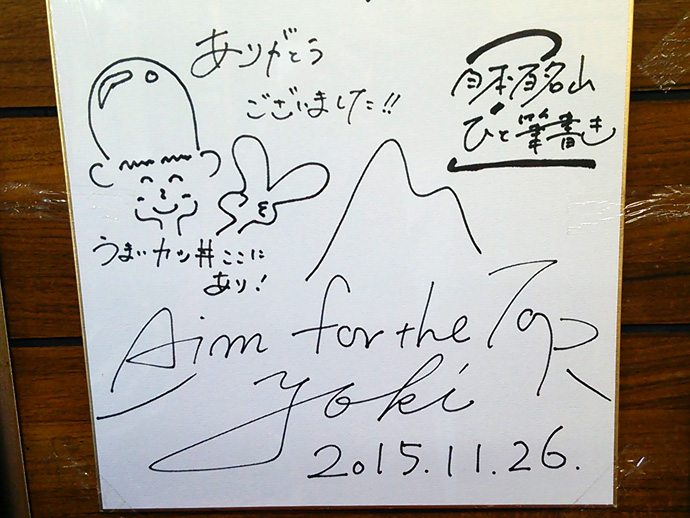 ありがとう
ございました!!
日本百名山
ひと筆書き
うまいカツ丼ここに
あり!
Aim for the Top
Yoki
2015.11.26.